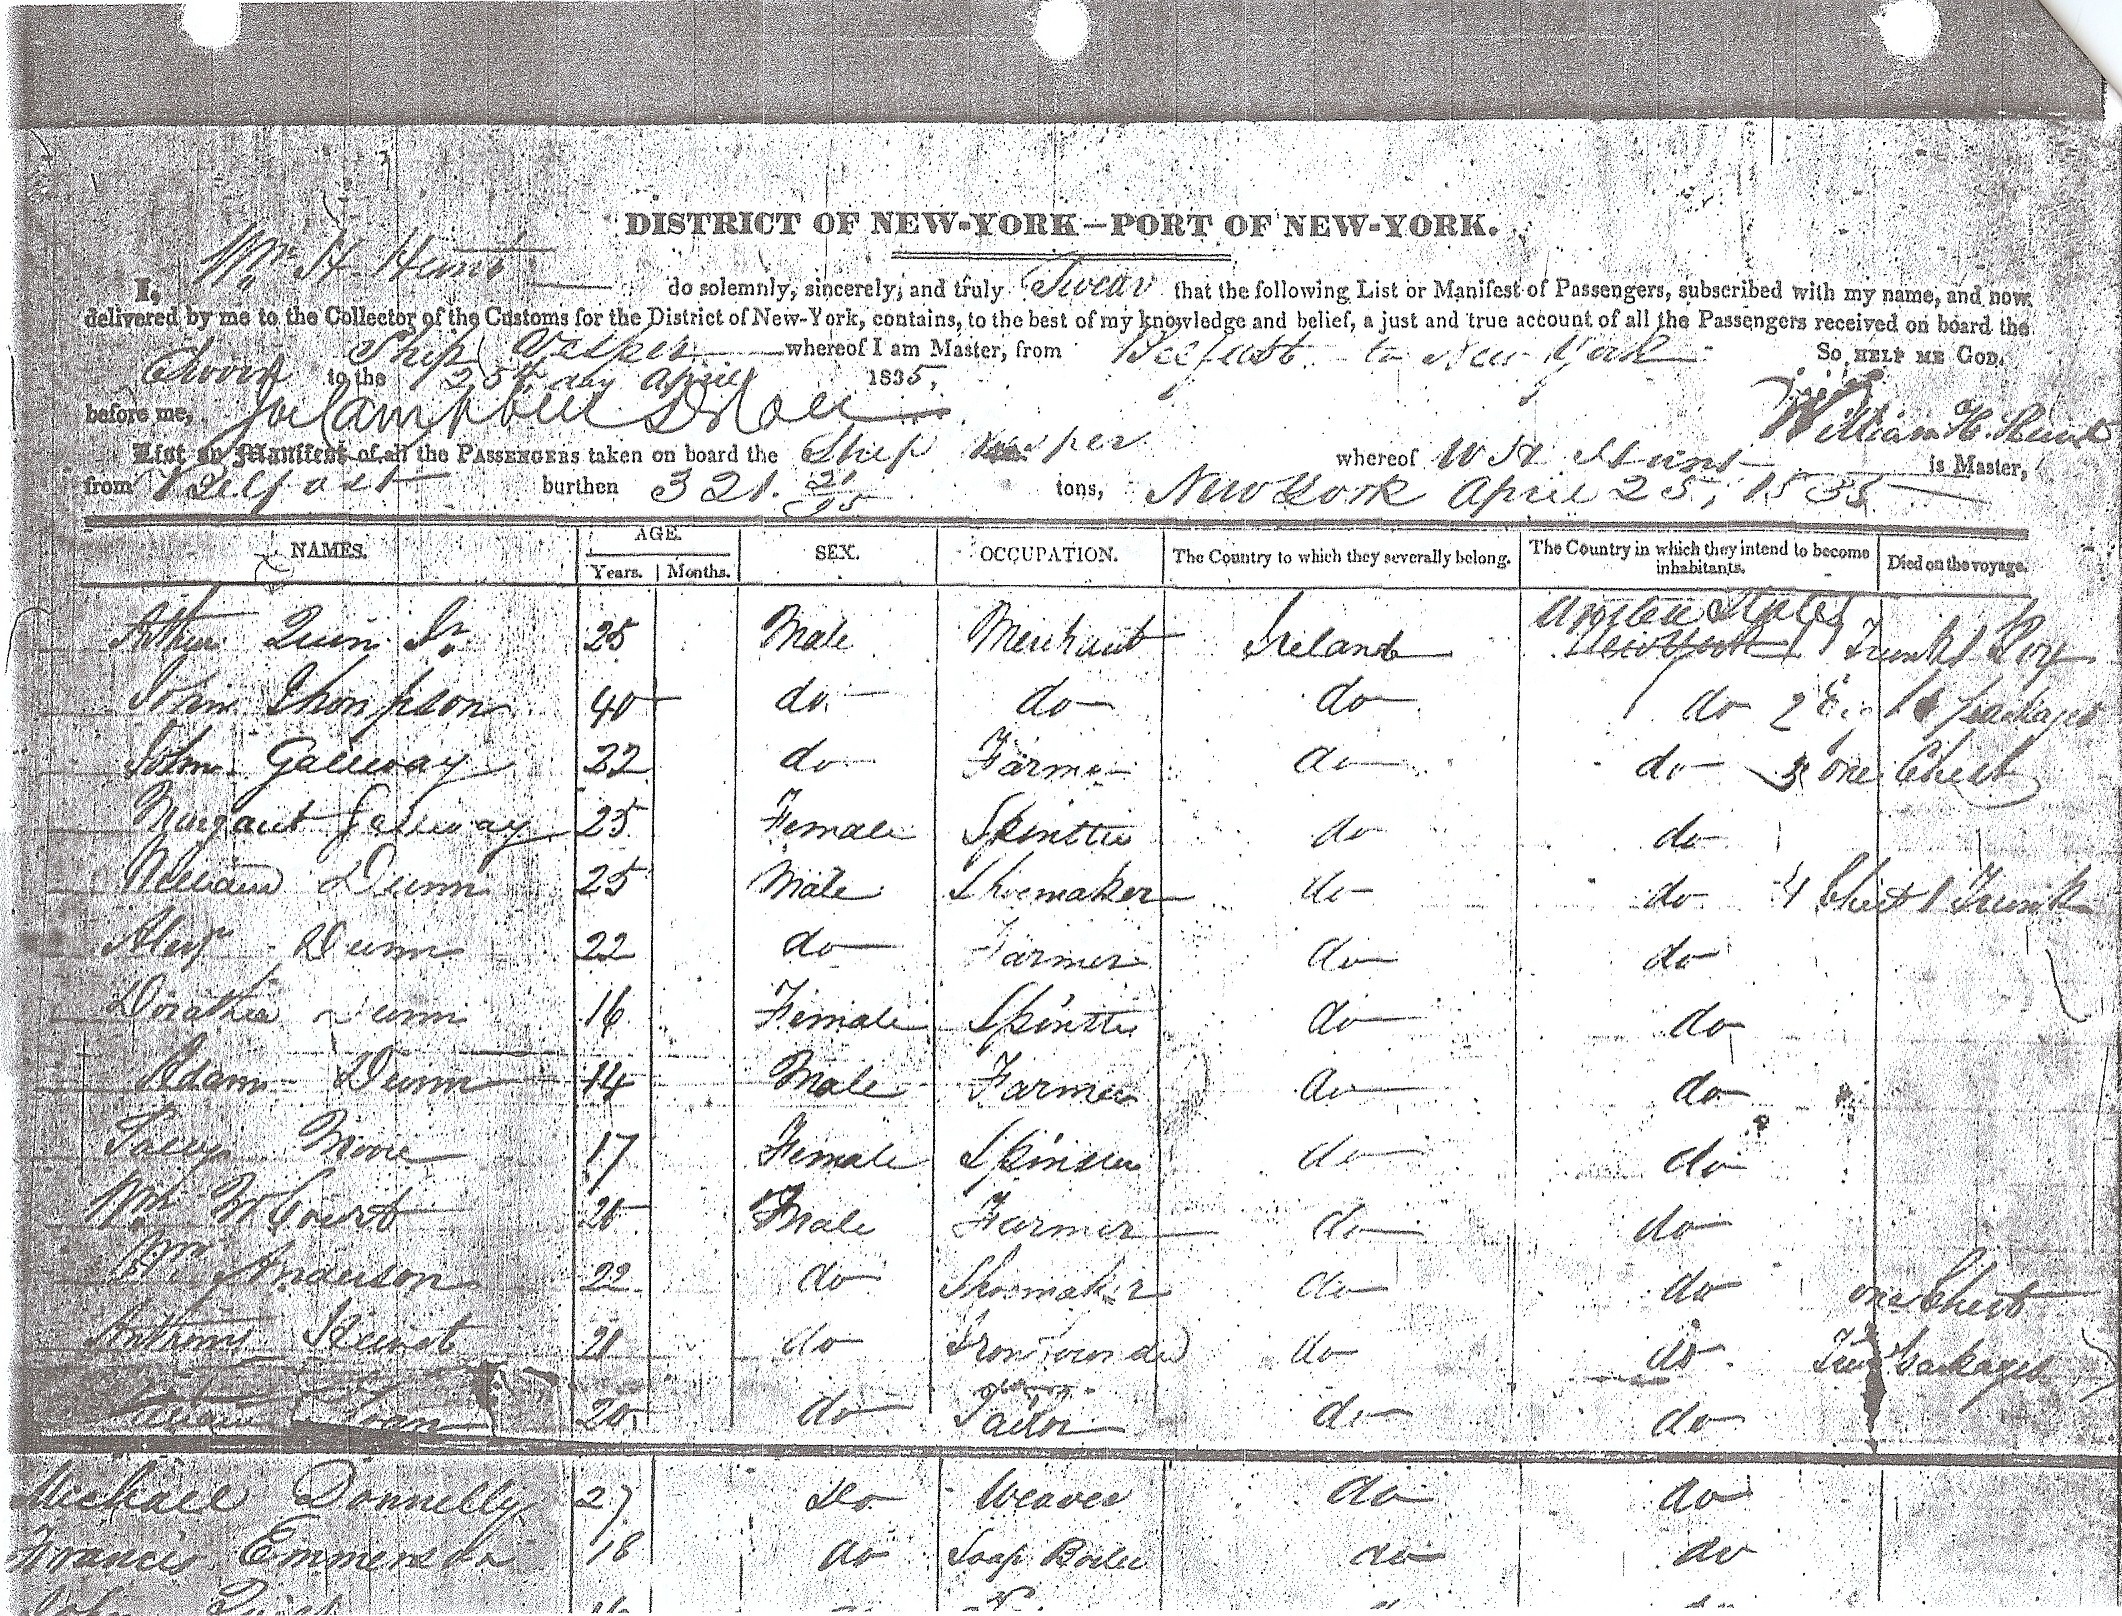 DISTRICT OF NEW-YORK—PORT OF NEW-YORK.
I, Wm. H. Hunt do solemnly, sincerely, and truly Swear that the following List or Manifest of Passengers, subscribed with my name, and now
delivered by me to the Collector of the Customs for the District of New-York, contains, to the best of my knowledge and belief, a just and true account of all the Passengers received on board the
Ship Vesper whereof I am Master, from Belfast to New York So HELP ME GOD.
Sworn to the 25th day April 1835,
before me, William H. Hunt
List or Manifest of all the PASSENGERS taken on board the Ship Vesper whereof W H Hunt is Master,
from Belfast burthen 321. 21/95 tons, New York April 25, 1835
NAMES. AGE. SEX. OCCUPATION. The Country to which they severally belong. The Country in which they intend to become inhabitants. Died on the voyage.
Years. Months.
United States
Arthur Quin Jr. 25 Male Merchant Ireland New York 1 Trunk 1 Box
John Thompson 40 do do do do 2 packages
John Galway 22 do Farmer do do 3 one Chest
Margaret Galway 25 Female Spinster do do
William Dunn 25 Male Shoemaker do do 4 Chest 1 Trunk
Alexr Dunn 22 do Farmer do do
Dorathea Dunn 16 Female Spinster do do
Adam Dunn 14 Male Farmer do do
Sally Moore 17 Female Spinster do do
Wm McCourt 20 Male Farmer do do
Wm Anderson 22 do Shoemaker do do one Chest
do Iron founder do do packages
20 do Tailor do do
Michael Donnelly 27 do Weaver do do
Francis Emmerson 18 do Soap Boiler do do
John